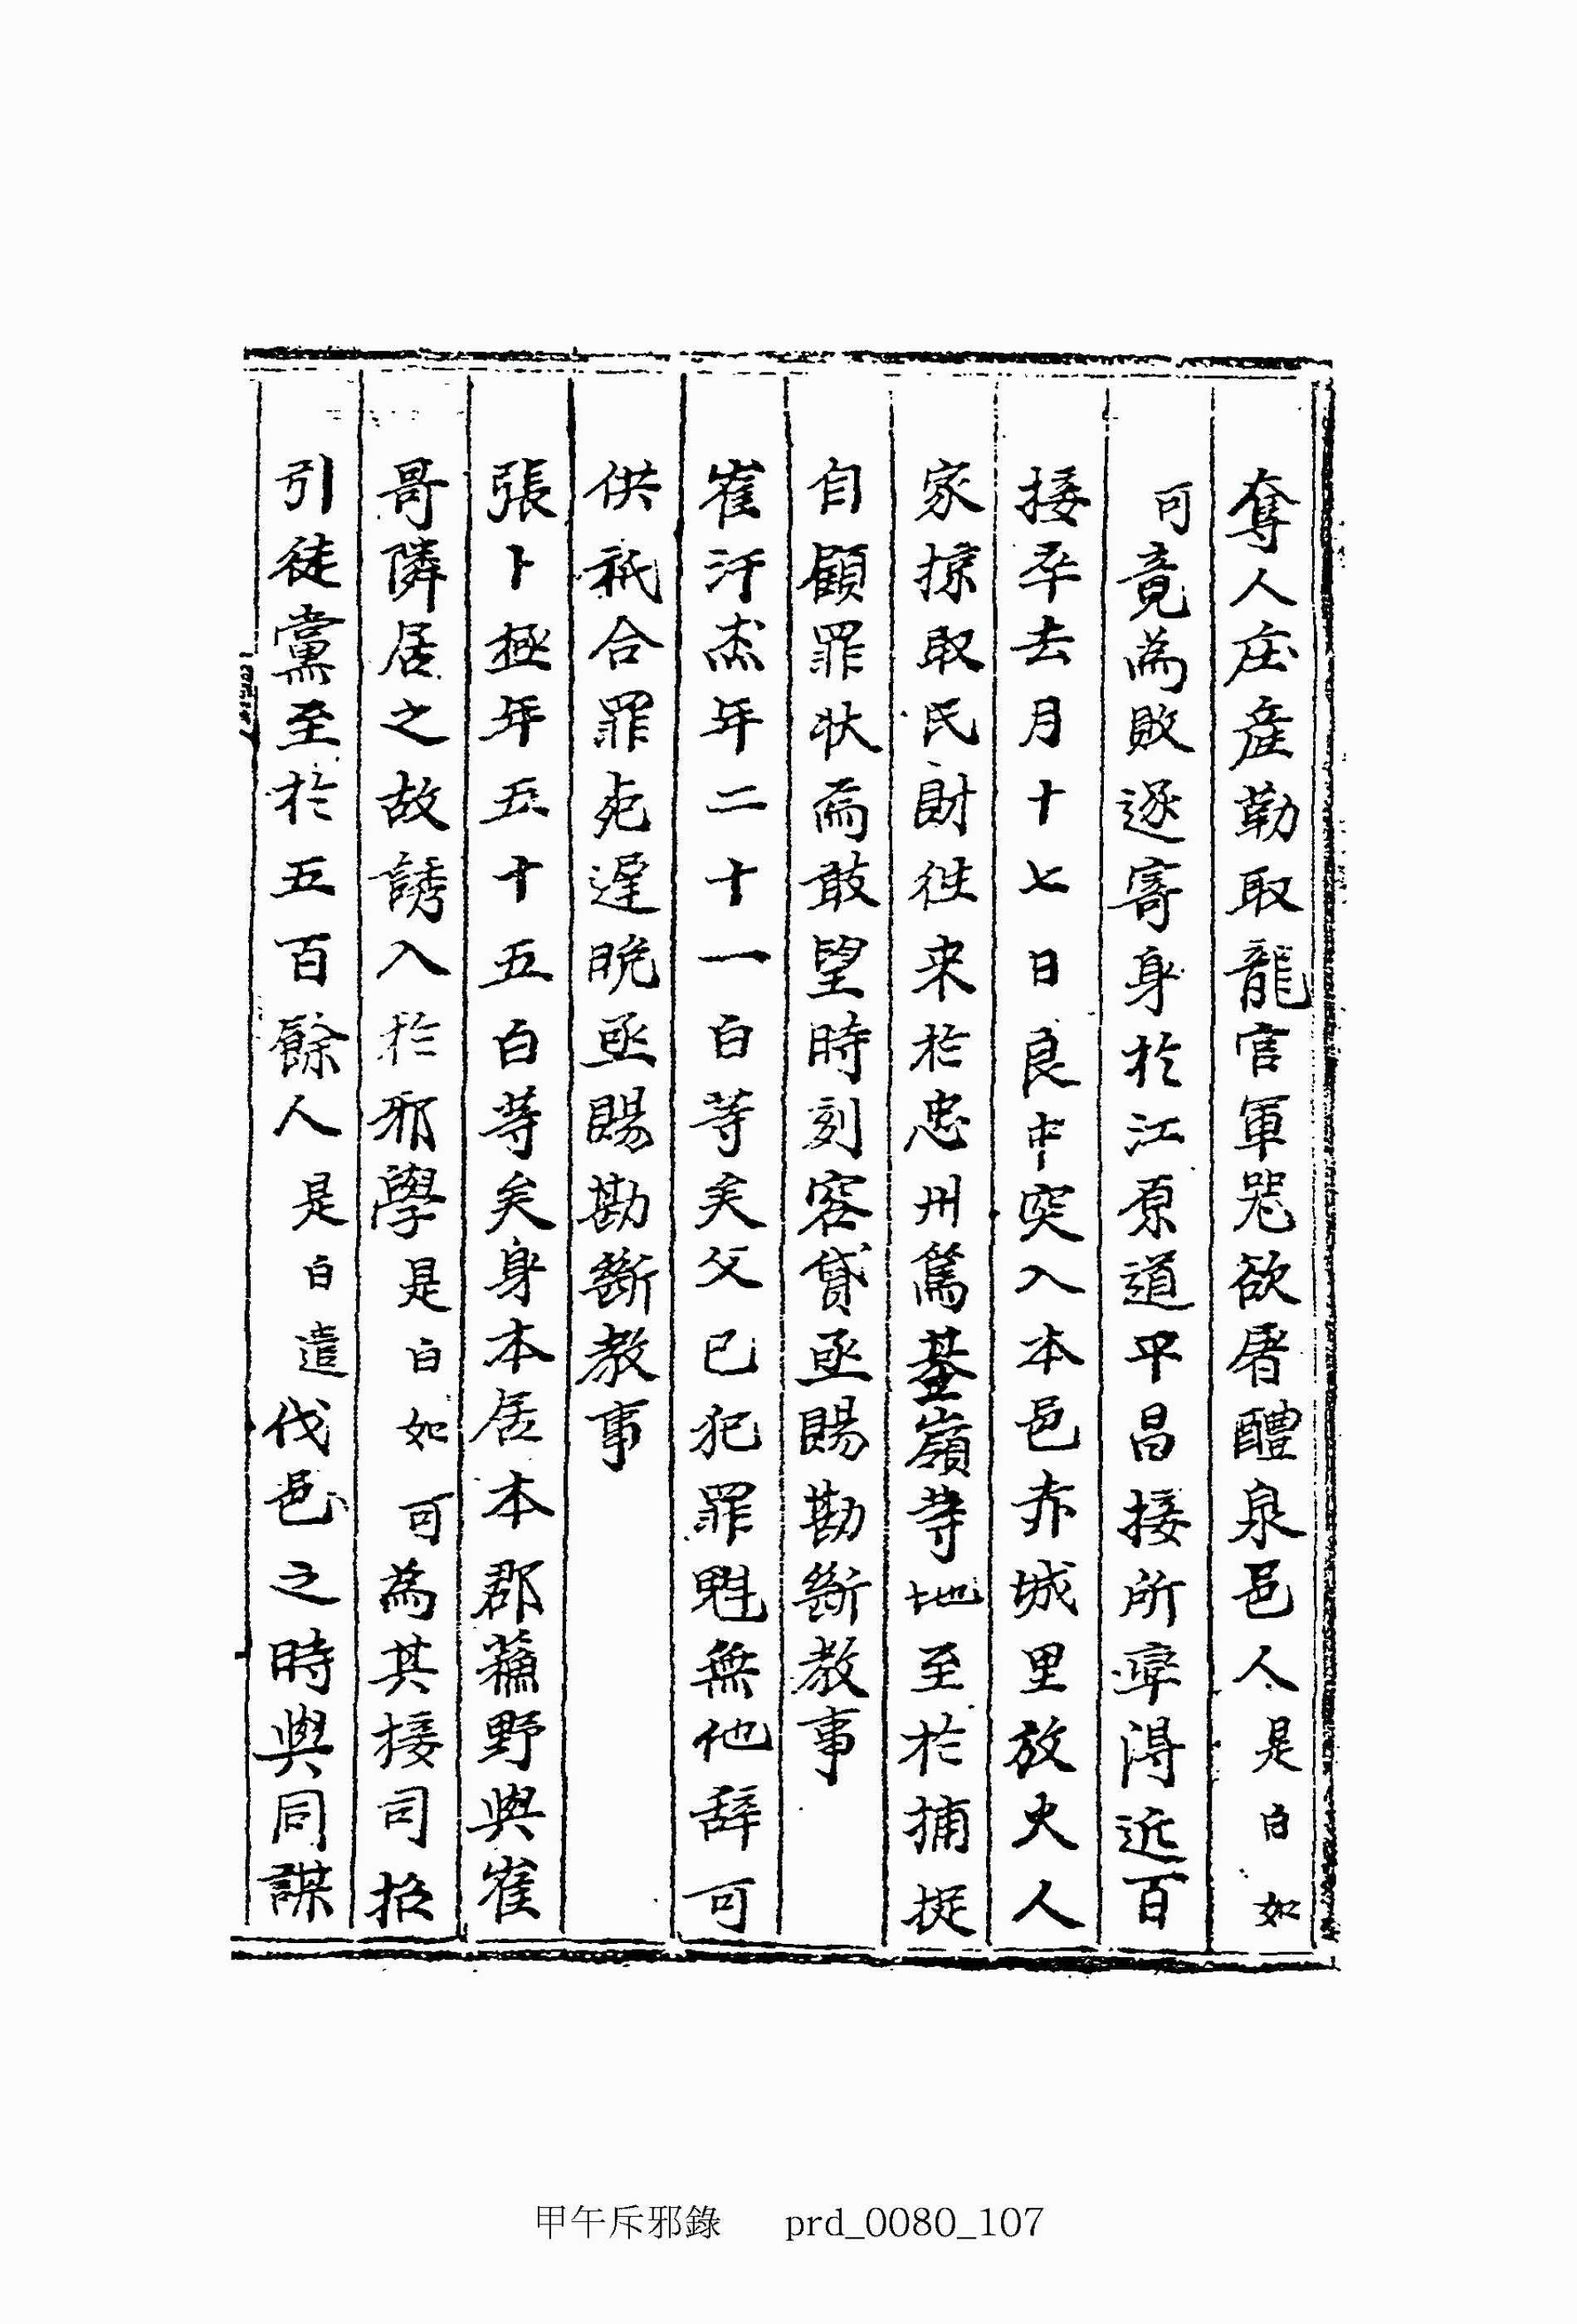 奪人庄産勒取龍官軍咒欲屠醴泉邑人是白如
可竟為敗逐寄身於江原道平昌接所率得近百
接卒去月十七日良中突入本邑赤城里放火人
家掠取民財徃来於忠州篤基嶺等地至於捕捉
自顧罪状焉敢望時刻容貸亟賜勘斷教事
崔汗杰年二十一白等矣父已犯罪魁無他辞可
供祇合罪死遲晩亟賜勘斷教事
張卜極年五十五白等矣身本居本郡蘓野與崔
哥隣居之故誘入於邪學是白如可為其接司招
引徒黨至於五百餘人是白遣伐邑之時與同謀
甲午斥邪錄 prd_0080_107